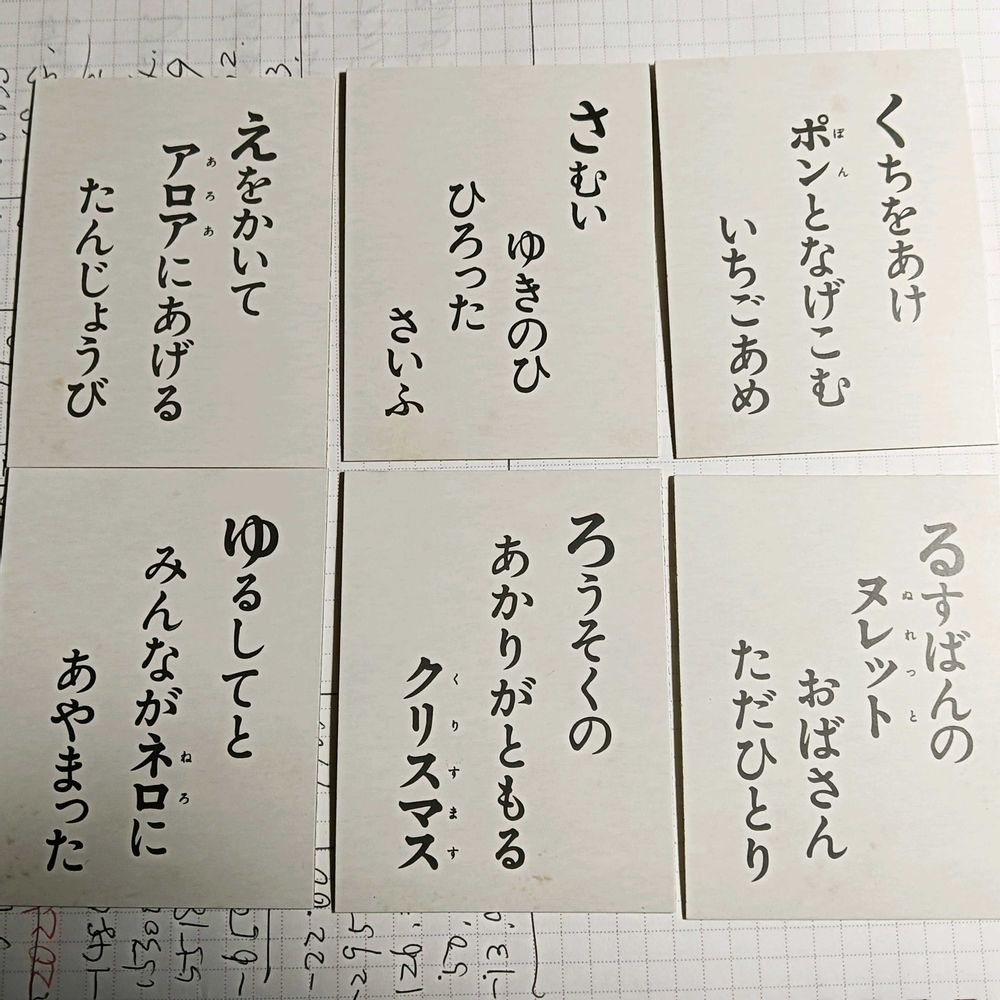 くちをあけ
ポンとなげこむ
いちごあめ
さむい
ゆきのひ
ひろった
さいふ
えをかいて
アロアにあげる
たんじょうび
るすばんの
ヌレット
おばさん
ただひとり
ろうそくの
あかりがともる
クリスマス
ゆるしてと
みんながネロに
あやまった